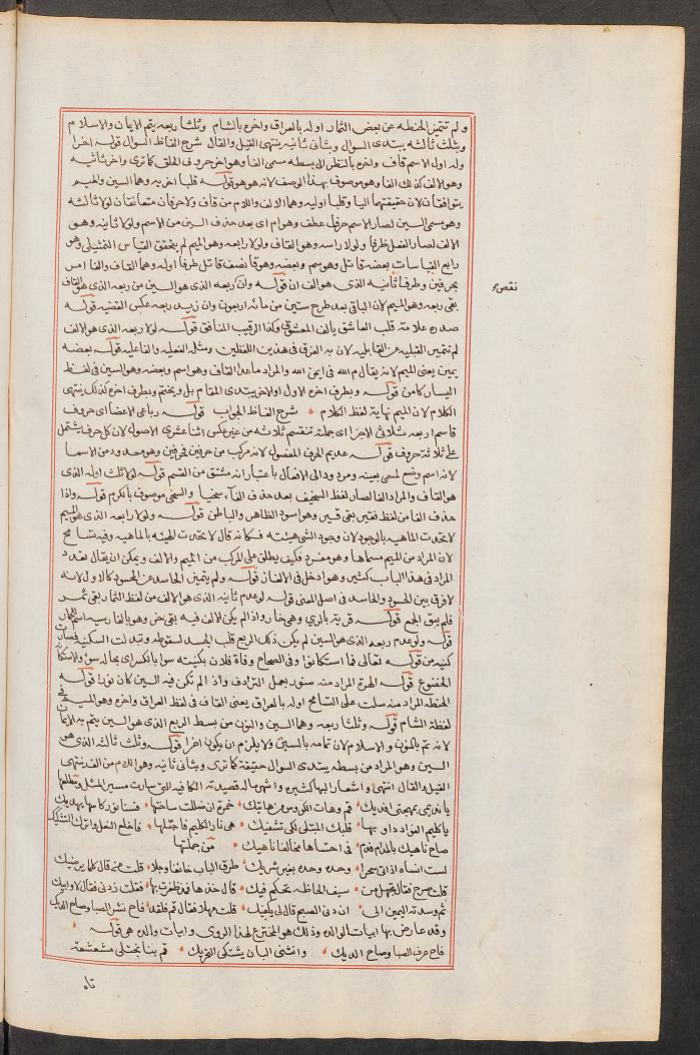 ولم تتميز الحنطه عن بعض الثمار اوله بالعراق واخره بالشام وثلثا ربعه يتم الايمان والاسلام
وبثلث ثالثه يبتدى السوال وبثانى ثانيه ينتهى القيل والقال شرح الفاظ السوال قوله اخرا
وله اول الاسم قاف واخره بالنظر الى بسطه مسمى الفا وهو اخر حروف الحلق كما ترى واخر ثانيه
وهو الالف كذلك الفا وهو موصوف بهذا الوصف لانه هو هو قوله قلبا اخريه وهما السين والميم
يتوافقان لان حقيقتهما اليا وقلبا اوليه وهما الالف واللام من قاف ولا حرفان متعانقان لولا ثالثه
وهو مسمى السين لصار الاسم حرفا عطف وهو ام اى بعد حذف السين من الاسم ولولا ثانيه وهو
الالف لصار الفعل ظرفا ولولا راسه وهو القاف ولولا رابعه وهو الميم لم يتحقق القياس التمثيلى وهو
رابع القياسات بعضه قاتل وهو سم وبعضه وهو قا نصف قاتل طرفا اوله وهما القاف والفا امر
بحرفين وطرفا ثانيه الذى هو الف ان قوله وان ربعه الذى هو السين من ربعه الذى هو القاف
نقص
بقى ربعه وهو الميم لان الباقى بعد طرح ستين من مائه اربعون وان زيد ربعه عكس القضيه قوله
صدره علامة قلب العاشق بالف المعشوق وكذا الرقيب المنافق قوله لولا ربعه الذى هو الالف
لم تتميز القبليه عن القابليه لان به الفرق فى هذين اللفظين ومثله الفعليه والفاعليه قوله بعضه
يمين يعنى الميم لانه يقال م الله فى ايمن الله والمراد ما عدا القاف وهو اسم وبعضه وهو السين فى لفظ
اليسار كامن قوله وبطرف اخره الاول اولا خر يبتدى المقام بل ويختم وبطرف اخره كذلك ينتهى
الكلام لان الميم نهاية لفظ الكلام شرح الفاظ الجواب قوله رباعى الاعضا اى حروف
قاسم اربعه ثلاثى الاجزا اى جملته تنقسم ثلاثه من غير عكس اثنا عشرى الاصول لان كل حرف يشتمل
على ثلاثة حروف قوله عديم الحرف المفصول لانه مركب من حرفين فى حرفين وهو معدود من الاسما
لانه اسم وضع لمسمى بعينه ومردود الى الافعال باعتبار انه مشتق من القسم قوله لولا ثلث اوله الذى
هو القاف والمراد الفا لصار لفظ السخيف بعد حذف الفاء سخيا والسخى موصوف بالكرم قوله واذا
حذف الفا من لفظ فقير بقى قير وهو اسود الظاهر والباطن قوله ولولا رابعه الذى هو الميم
لاتحدت الماهيه بالوجود لان وجود الشى هيئته فكانه قال لاتحدت الهيئه بالماهيه وفيه تسامح
لان المراد من الميم مسماها وهو مفرد فكيف يطلق على المركب من الميم والالف ويمكن ان يقال تعدد
المراد فى هذا الباب كثير وهو ادخل فى الالغاز قوله ولم يتميز الحاسد عن الحسود كالاول لانه
لا فرق بين الحسود والحاسد فى اصل المعنى قوله لو عدم ثانيه الذى هو الالف من لفظ الثمار بقى ثمر
فلم يبق الجمع قوله قرية بالرى وهى خار واذا لم يكن لالف فيه بقى خر وهو بالفارسيه اسم للحمار
قوله ولو عدم ربعه الذى هو السين لم يكن ذلك الربع قلب الجسد لسقوطه وتبدلت السكينه فصارت
كنيه من قوله تعالى فما استكانوا وفى الصحاح وفاة فلان بكنيته سوا بالكسر اى بحالة سوء والاستكانة
الخضوع قوله الهرة المراد منه سنور بجعل الترادف واذا لم تكن فيه السين كان نورا قوله
الحنطه المراد منه سلت على التسامح اوله بالعراق يعنى القاف فى لفظ العراق واخره وهو الميم فى
لفظة الشام قوله وثلثا ربعه وهما السين والنون من بسط الربع الذى هو السين يتم به الايمان
لانه تم بالنون والاسلام لان تمامه بالسين ولا يلزم ان يكون اخرا قوله وثلث ثالثه الذى هو
السين وهو المراد من بسطه يبتدى السوال حقيقة كما ترى وبثانى ثانيه وهو اللام من الف ينتهى
القيل والقال انتهى واشعارها كثيره واشهرها له قصيدته الكافيه التى سارت مسير المثل ومطلعها
يا نديمى بمهجتى افديك قم وهات الكؤس من هاتيك خمرة ان ضللت ساحتها فسنا نور كاسها يهديك
يا كليم الفؤاد داو بها قلبك المبتلى لكى تشفيك هى نار الكليم فاجتلها فاخلع النعل واترك التشكيك
صاح ناهيك بالمدام فدم فى احتساها مخالفا ناهيك من جملتها
لست انساه اذ اتى سحرا وحده وحده بغير شريك طرق الباب خائفا وجلا قلت من قال كلما يرضيك
قلت صرح فقال تجهل من سيف الحاظه تحكم فيك قال خذها فقد ظفرت بها فقلت زدنى فقال لا وابيك
ثم وسدته اليمين الى ان دنى الصبح قال لى يكفيك قلت مهلا فقال قم فلقد فاح نشر الصبا وصاح الديك
وقد عارض بها ابيات لوالده وذلك هو المخترع لهذا الروى وابيات والده هى قوله
فاح عرف الصبا وصاح الديك وانثنى البان يشتكى التحريك قم بنا نجتلى مشعشعة
تاه